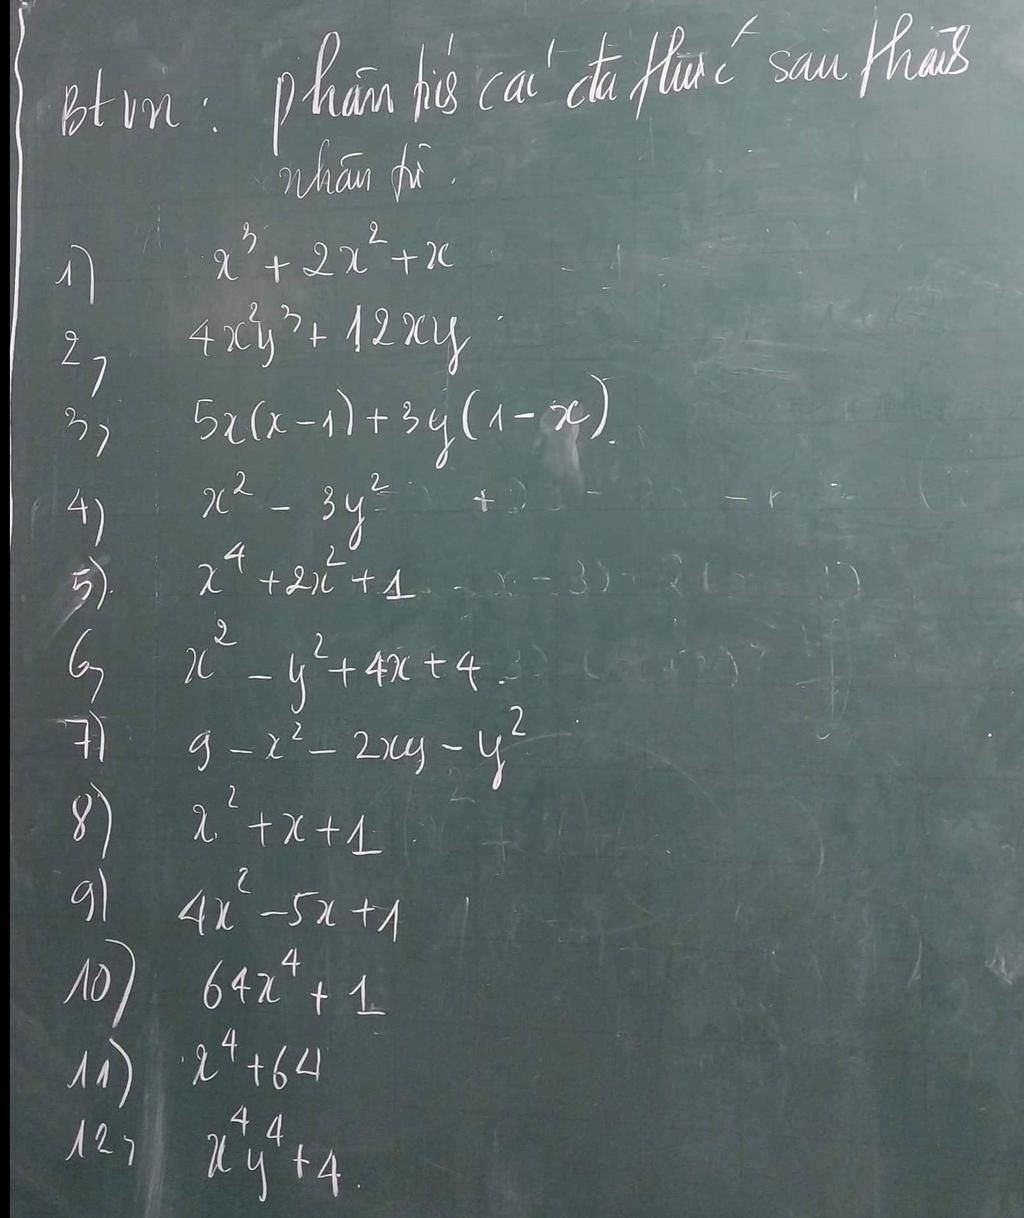 Btvn: phân tích các đa thức sau thành
nhân tử.
1) x³ + 2x² + x
2, 4x²y³ + 12xy
3, 5x(x-1) + 3y(1-x)
4) x² - 3y²
5) x⁴ + 2x² + 1
6, x² - y² + 4x + 4.
7) 9 - x² - 2xy - y²
8) x² + x + 1
9) 4x² - 5x + 1
10) 64x⁴ + 1
11) x⁴ + 64
12, x⁴y⁴ + 4.